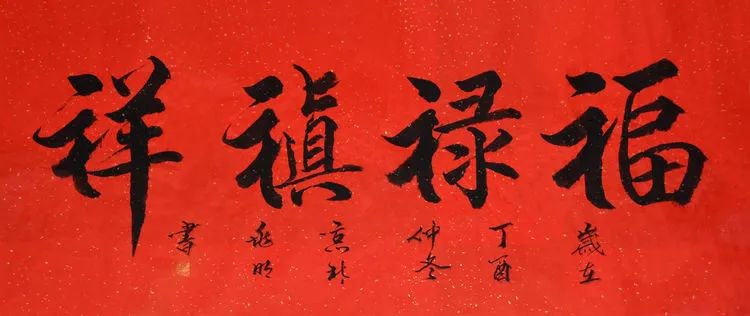 福禄禛祥
歲在
丁酉
仲冬
京北
明
書